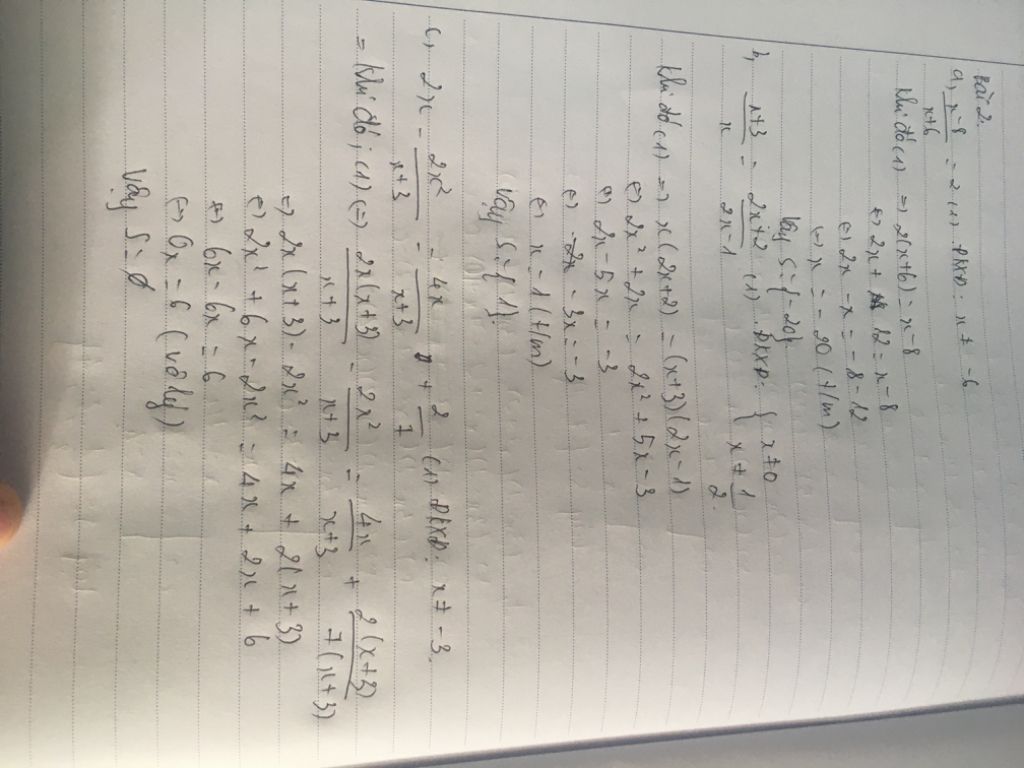 Bài 2.
a, \frac{x-8}{x+6} = 2 (1) ĐKXĐ: x ≠ -6
Khi đó (1) => 2(x+6) = x-8
<=> 2x + 12 = x - 8
<=> 2x - x = -8 - 12
<=> x = -20 (t/m)
Vậy S = {-20}.
b, \frac{x+3}{x} = \frac{2x+2}{2x-1} (1) ĐKXĐ: { x ≠ 0 x ≠ \frac{1}{2}.
Khi đó (1) => x(2x+2) = (x+3)(2x-1)
<=> 2x² + 2x = 2x² + 5x - 3
<=> 2x - 5x = -3
<=> -3x = -3
<=> x = 1 (t/m)
Vậy S = {1}.
c, 2x - \frac{2x²}{x+3} = \frac{4x}{x+3} + \frac{2}{7} (1) ĐKXĐ: x ≠ -3.
= Khi đó; (1) <=> \frac{2x(x+3)}{x+3} - \frac{2x²}{x+3} = \frac{4x}{x+3} + \frac{2(x+3)}{7(x+3)}
=> 2x(x+3) - 2x² = 4x + 2(x+3)
<=> 2x² + 6x - 2x² = 4x + 2x + 6
<=> 6x - 6x = 6
<=> 0x = 6 (vô lý)
Vậy S = ∅